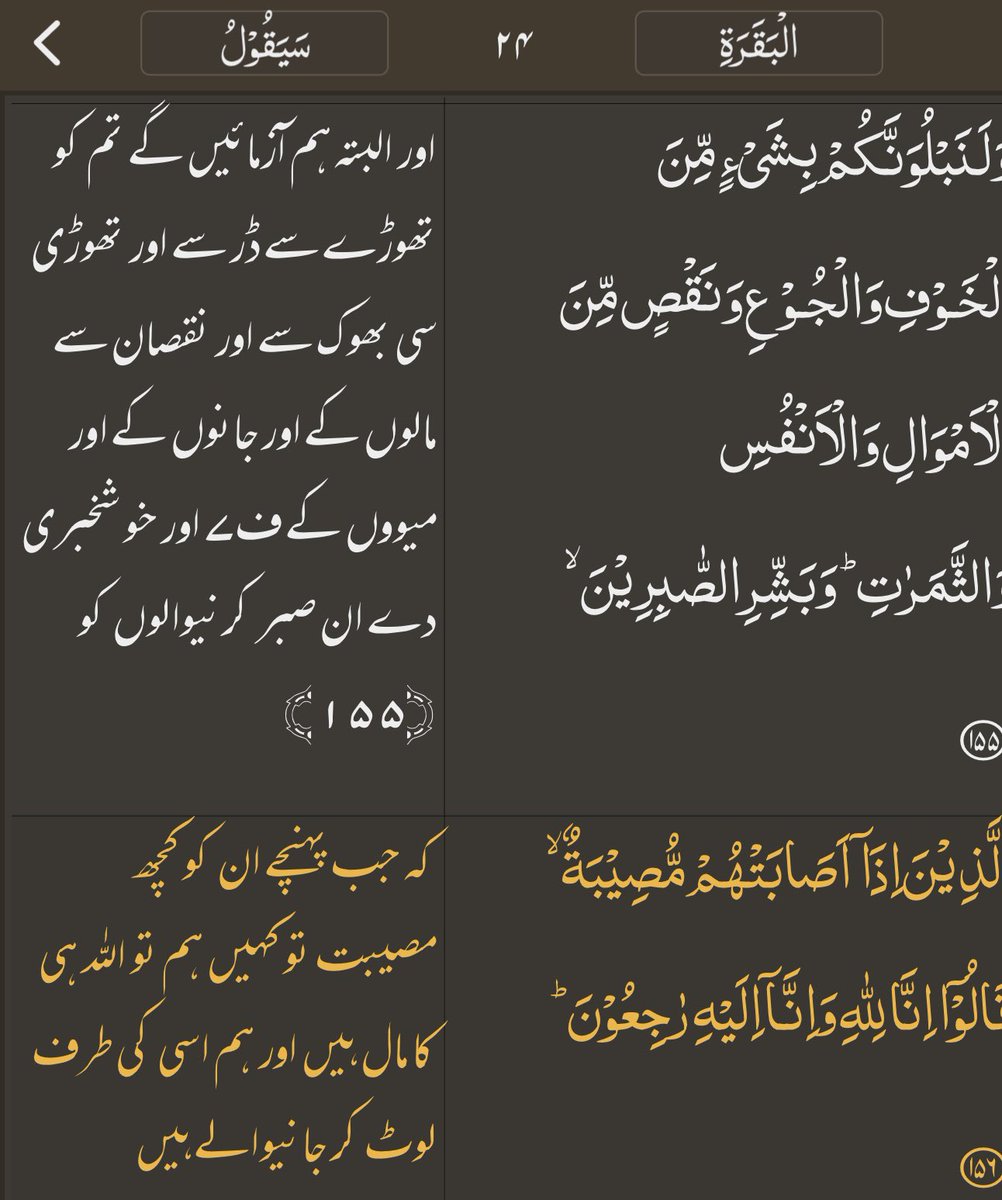 الْبَقَرَةِ
۲۴
سَيَقُوْلُ
وَلَنَبْلُوَنَّكُمْ بِشَیْءٍ مِّنَ
لْخَوْفِ وَالْجُوْعِ وَنَقْصٍ مِّنَ
لْاَمْوَالِ وَالْاَنْفُسِ
وَالثَّمَرٰتِ ؕ وَبَشِّرِ الصّٰبِرِيْنَ ۙ
۱۵۵
اور البتہ ہم آزمائیں گے تم کو
تھوڑے سے ڈر سے اور تھوڑی
سی بھوک سے اور نقصان سے
مالوں کے اور جانوں کے اور
میووں کے فے اور خوشخبری
دے ان صبر کرنیوالوں کو
﴿۱۵۵﴾
لَّذِيْنَ اِذَاۤ اَصَابَتْهُمْ مُّصِيْبَةٌ ۙ
قَالُوْۤا اِنَّا لِلّٰهِ وَاِنَّاۤ اِلَيْهِ رٰجِعُوْنَ ؕ
۱۵۶
کہ جب پہنچے ان کو کچھ
مصیبت تو کہیں ہم تو اللہ ہی
کا مال ہیں اور ہم اسی کی طرف
لوٹ کر جانیوالے ہیں